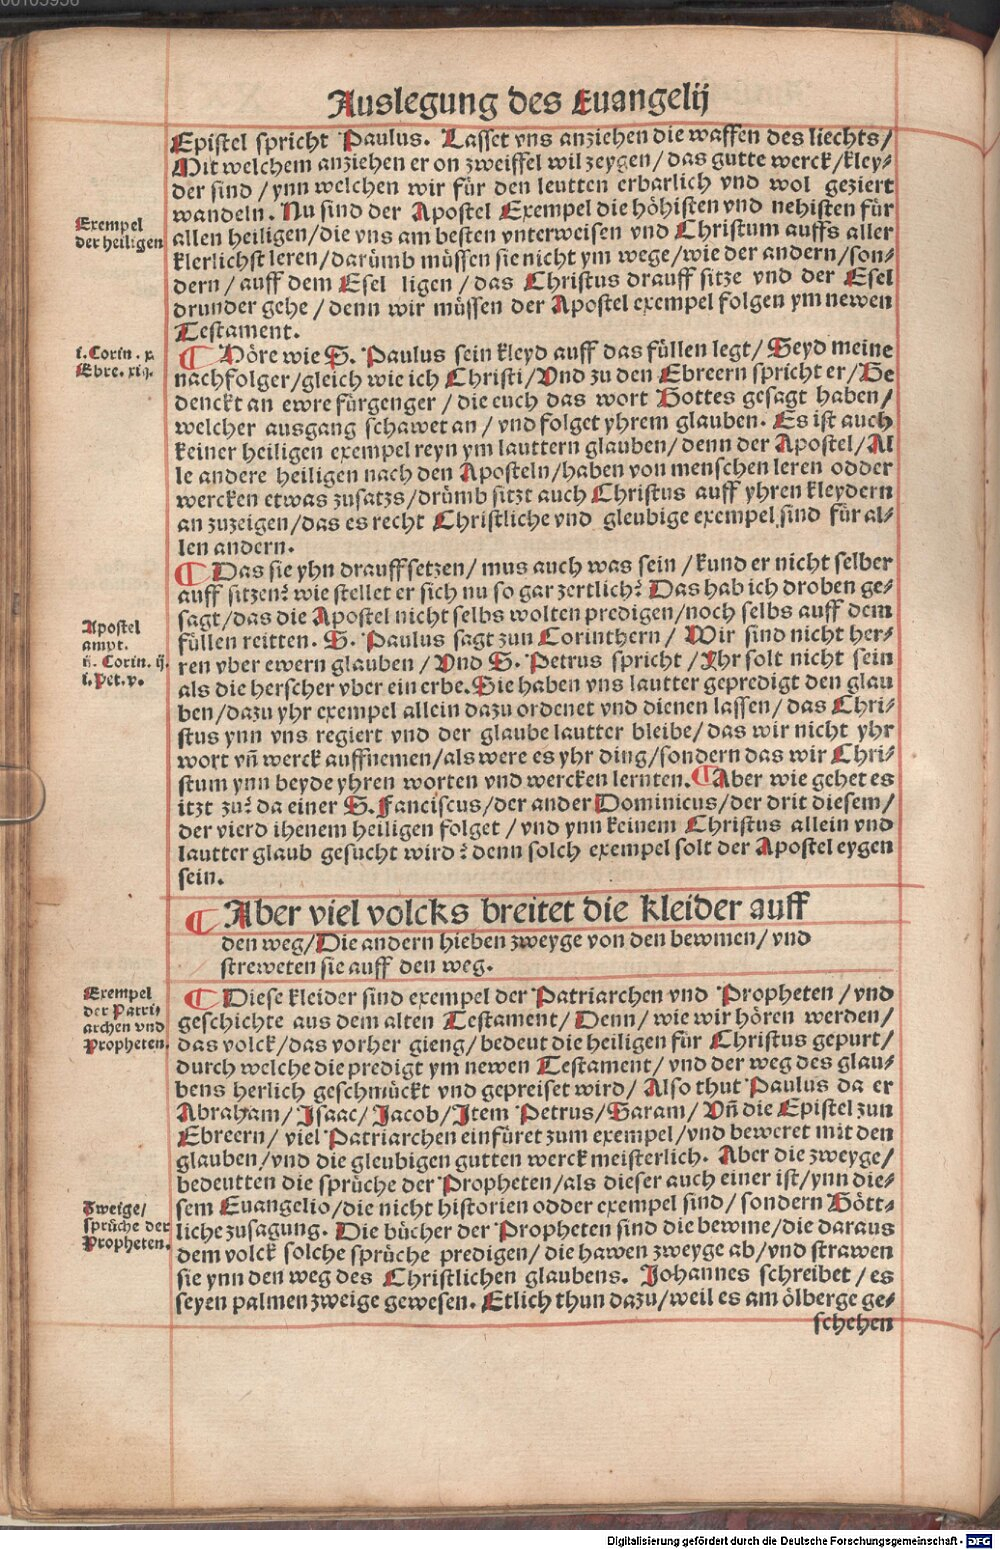 00105956
Auslegung des Euangelij
Epistel spricht Paulus. Lasset vns anziehen die waffen des liechts/
Mit welchem anziehen er on zweiffel wil zeygen/das gutte werck/kley⸗
der sind/ynn welchen wir für den leutten erbarlich vnd wol geziert
wandeln. Nu sind der Apostel Exempel die höhisten vnd nehisten für
Exempel
der heiligen
allen heiligen/die vns am besten vnterweisen vnd Christum auffs aller
klerlichst leren/darümb müssen sie nicht ym wege/wie der andern/son⸗
dern/auff dem Esel ligen/das Christus drauff sitze vnd der Esel
drunder gehe/denn wir müssen der Apostel exempel folgen ym newen
Testament.
i. Corin. x
Ebre. xiij.
¶ Höre wie S. Paulus sein kleyd auff das füllen legt/Seyd meine
nachfolger/gleich wie ich Christi/Vnd zu den Ebreern spricht er/Ge
denckt an ewre fürgenger/die euch das wort Gottes gesagt haben/
welcher ausgang schawet an/vnd folget yhrem glauben. Es ist auch
keiner heiligen exempel reyn ym lauttern glauben/denn der Apostel/Al
le andere heiligen nach den Aposteln/haben von menschen leren odder
wercken etwas zusatzs/drümb sitzt auch Christus auff yhren kleydern
an zuzeigen/das es recht Christliche vnd gleubige exempel sind für al⸗
len andern.
¶ Das sie yhn drauff setzen/mus auch was sein/kund er nicht selber
auff sitzen? wie stellet er sich nu so gar zertlich? Das hab ich droben ge⸗
sagt/das die Apostel nicht selbs wolten predigen/noch selbs auff dem
Apostel
ampt.
ij. Corin. ij.
i. Pet. v.
füllen reitten. S. Paulus sagt zun Corinthern/Wir sind nicht her⸗
ren vber ewern glauben/Vnd S. Petrus spricht/Yhr solt nicht sein
als die herscher vber ein erbe. Sie haben vns lautter gepredigt den glau
ben/dazu yhr exempel allein dazu ordenet vnd dienen lassen/das Chri⸗
stus ynn vns regiert vnd der glaube lautter bleibe/das wir nicht yhr
wort vñ werck auffnemen/als were es yhr ding/sondern das wir Chri⸗
stum ynn beyde yhren worten vnd wercken lernten. ¶ Aber wie gehet es
itzt zu? da einer S. Fanciscus/der ander Dominicus/der drit diesem/
der vierd ihenem heiligen folget/vnd ynn keinem Christus allein vnd
lautter glaub gesucht wird? denn solch exempel solt der Apostel eygen
sein.
¶ Aber viel volcks breitet die kleider auff
den weg/Die andern hieben zweyge von den bewmen/vnd
streweten sie auff den weg.
Exempel
der Patri⸗
archen vnd
Propheten.
¶ Diese kleider sind exempel der Patriarchen vnd Propheten/vnd
geschichte aus dem alten Testament/Denn/wie wir hören werden/
das volck/das vorher gieng/bedeut die heiligen für Christus gepurt/
durch welche die predigt ym newen Testament/vnd der weg des glau⸗
bens herlich geschmückt vnd gepreiset wird/Also thut Paulus da er
Abraham/Isaac/Jacob/Item Petrus/Saram/Vñ die Epistel zun
Ebreern/viel Patriarchen einfüret zum exempel/vnd beweret mit den
glauben/vnd die gleubigen gutten werck meisterlich. Aber die zweyge/
bedeutten die sprüche der Propheten/als dieser auch einer ist/ynn die⸗
sem Euangelio/die nicht historien odder exempel sind/sondern Gött⸗
Zweige/
sprüche der
Propheten.
liche zusagung. Die bücher der Propheten sind die bewme/die daraus
dem volck solche sprüche predigen/die hawen zweyge ab/vnd strawen
sie ynn den weg des Christlichen glaubens. Johannes schreibet/es
seyen palmen zweige gewesen. Etlich thun dazu/weil es am ölberge ge⸗
schehen
Digitalisierung gefördert durch die Deutsche Forschungsgemeinschaft - DFG